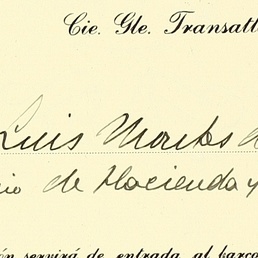 Cie. Gle. Transatl
Luis Montes d
io de Hacienda y
ón servirá de entrada al barco